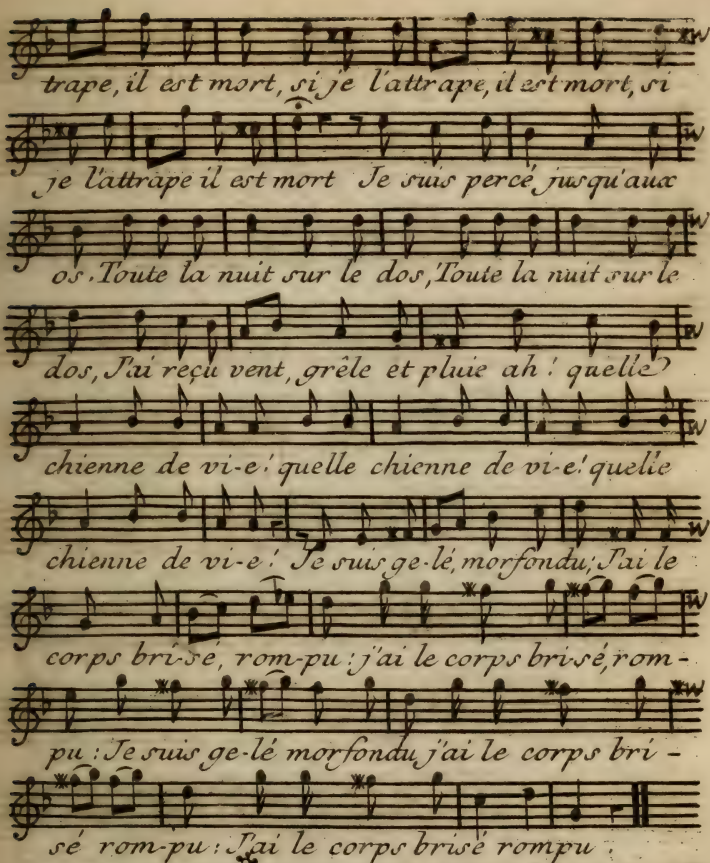 trape, il est mort, si je l'attrape, il est mort, si
je l'attrape il est mort Je suis percé jusqu'aux
os. Toute la nuit sur le dos, Toute la nuit sur le
dos, J'ai reçu vent, grêle et pluie ah! quelle
chienne de vi-e! quelle chienne de vi-e! quelle
chienne de vi-e! Je suis ge-lé, morfondu; J'ai le
corps bri-sé, rom-pu: j'ai le corps bri-sé, rom-
pu: Je suis ge-lé morfondu j'ai le corps bri-
sé rom-pu: J'ai le corps brisé rompu.